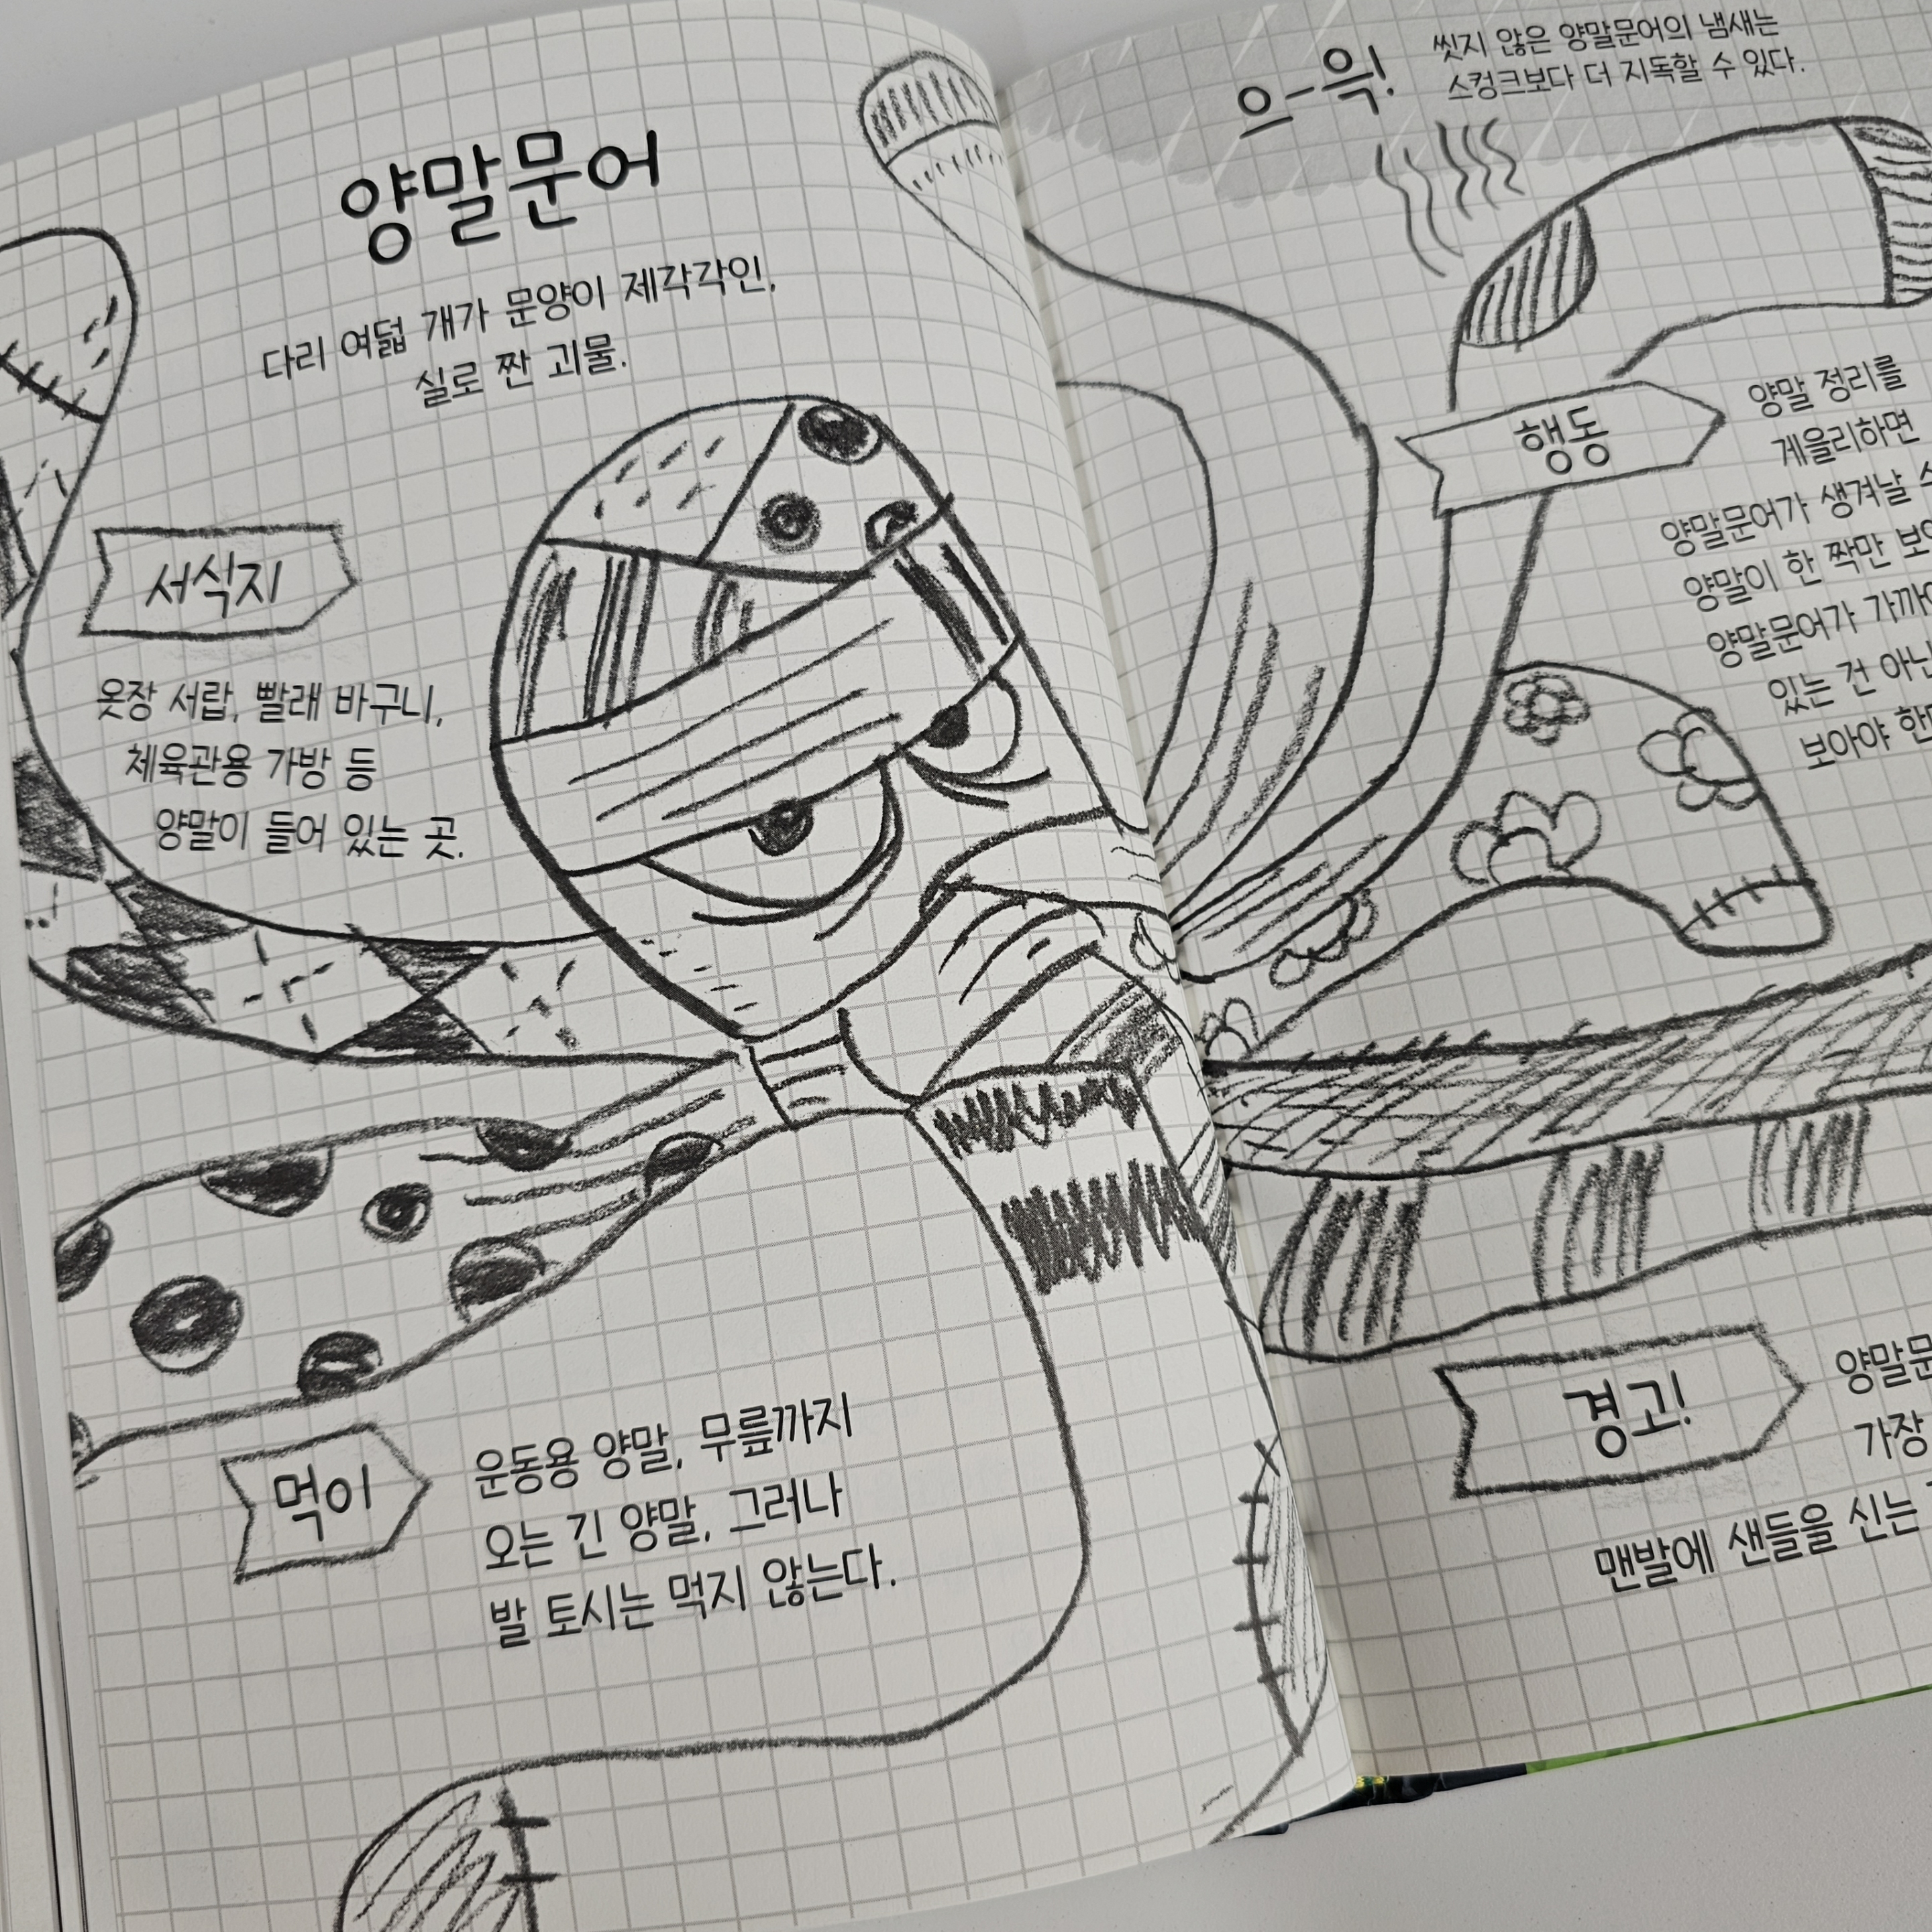 양말문어
다리 여덟 개가 문양이 제각각인,
실로 짠 괴물.
서식지
옷장 서랍, 빨래 바구니,
체육관용 가방 등
양말이 들어 있는 곳.
먹이
운동용 양말, 무릎까지
오는 긴 양말, 그러나
발 토시는 먹지 않는다.
으-윽!
씻지 않은 양말문어의 냄새는
스컹크보다 더 지독할 수 있다.
행동
양말 정리를
게을리하면
양말문어가 생겨날
양말이 한 짝만
양말문어가
있는 건
보아야
경고!
가장
맨발에 샌들을 신는